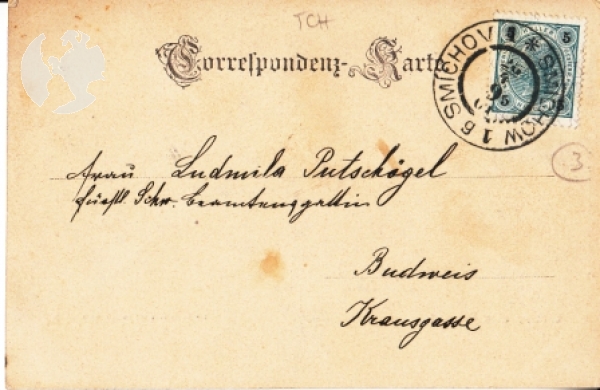 TCH
Correspondenz-Karte
SMICHOV * SMICHOW 1
5
Frau Ludmila Putschögel
fürstl. Schw. Beamtensgattin
Budweis
Krausgasse
3